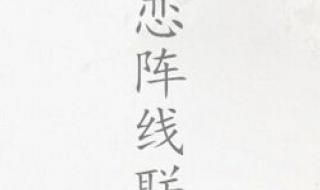 恋阵线联